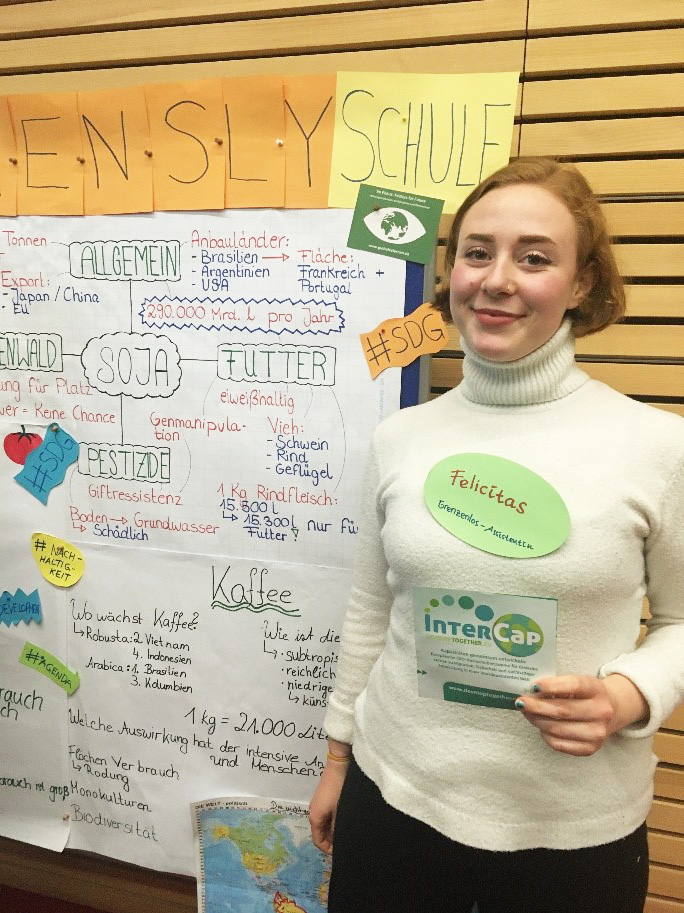 ENSLY SCHULE
Im Fokus: Fashion for Future
Tonnen
Export:
- Japan / China
- EU
ALLGEMEIN
Anbauländer:
- Brasilien →
- Argentinien
- USA
Fläche:
Frankreich +
Portugal
290.000 Mrd. l pro Jahr
#SDG
ENWALD
ung für Platz
wer = Keine Chance
SOJA
FUTTER
eiweißhaltig
Genmanipula-
tion
Vieh:
- Schwein
- Rind
- Geflügel
#SDG
PESTIZIDE
Giftressistenz
Boden → Grundwasser
↳ Schädlich
1 Kg Rindfleisch:
15.500 l
↳ 15.300 l nur fü
Futter!
Felicitas
Grenzenlos-Assistentin
# NACH-
HALTIG-
KEIT
DEVELOPMEN
#AGENDA
rauch
ch
brauch mit groß
Kaffee
Wo wächst Kaffee?
↳ Robusta: 2. Vietnam
4. Indonesien
Arabica: 1. Brasilien
3. Kolumbien
Wie ist die
↳ · subtropis
· reichlich
· niedrige
↳ küns
1 kg = 21.000 Lite
Welche Auswirkung hat der intensive An
und Menschen?
Flächen Verbrauch
↳ Rodung
Monokulturen
Biodiversität
DIE WELT - politisch
InterCap
TOGETHER